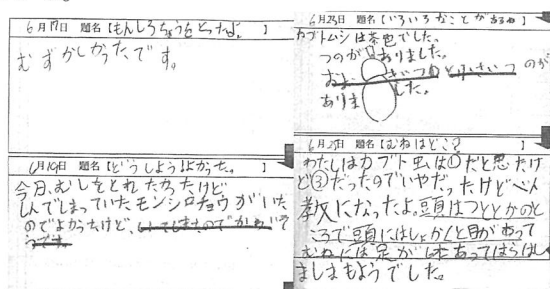 6月17日 題名【もんしろちょうをとったよ。】
むずかしかったです。
6月19日 題名【どうしよう!よかった。】
今日、むしをとれなかったけど
しんでしまっていたモンシロチョウがいた
のでよかったけど、
6月23日 題名【いろいろなことが
カブトムシは茶色でした。
つのが ありました。
きいつのと小さいつのが
ありました。
6月25日 題名【むねはどこ?】
わたしはカブト虫は①だと思たけ
ど③だったのでいやだったけどべん
教になったよ。頭はつととかのと
ころで頭にはしょかくと目があって
むねには足が 本あってはらはし
ましまもようでした。